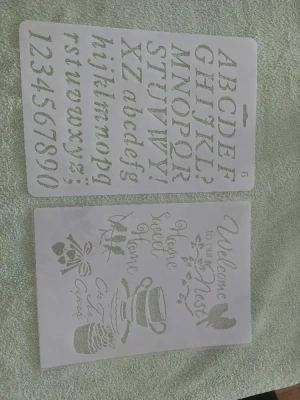 ABCDEF
GHIJKL?
MNOPQR
STUVWY!
XZ abcdefg
hijklmnopq
rstuvwxyz;
1234567890
6
Welcome
to our
Nest
Home
Sweet
Home